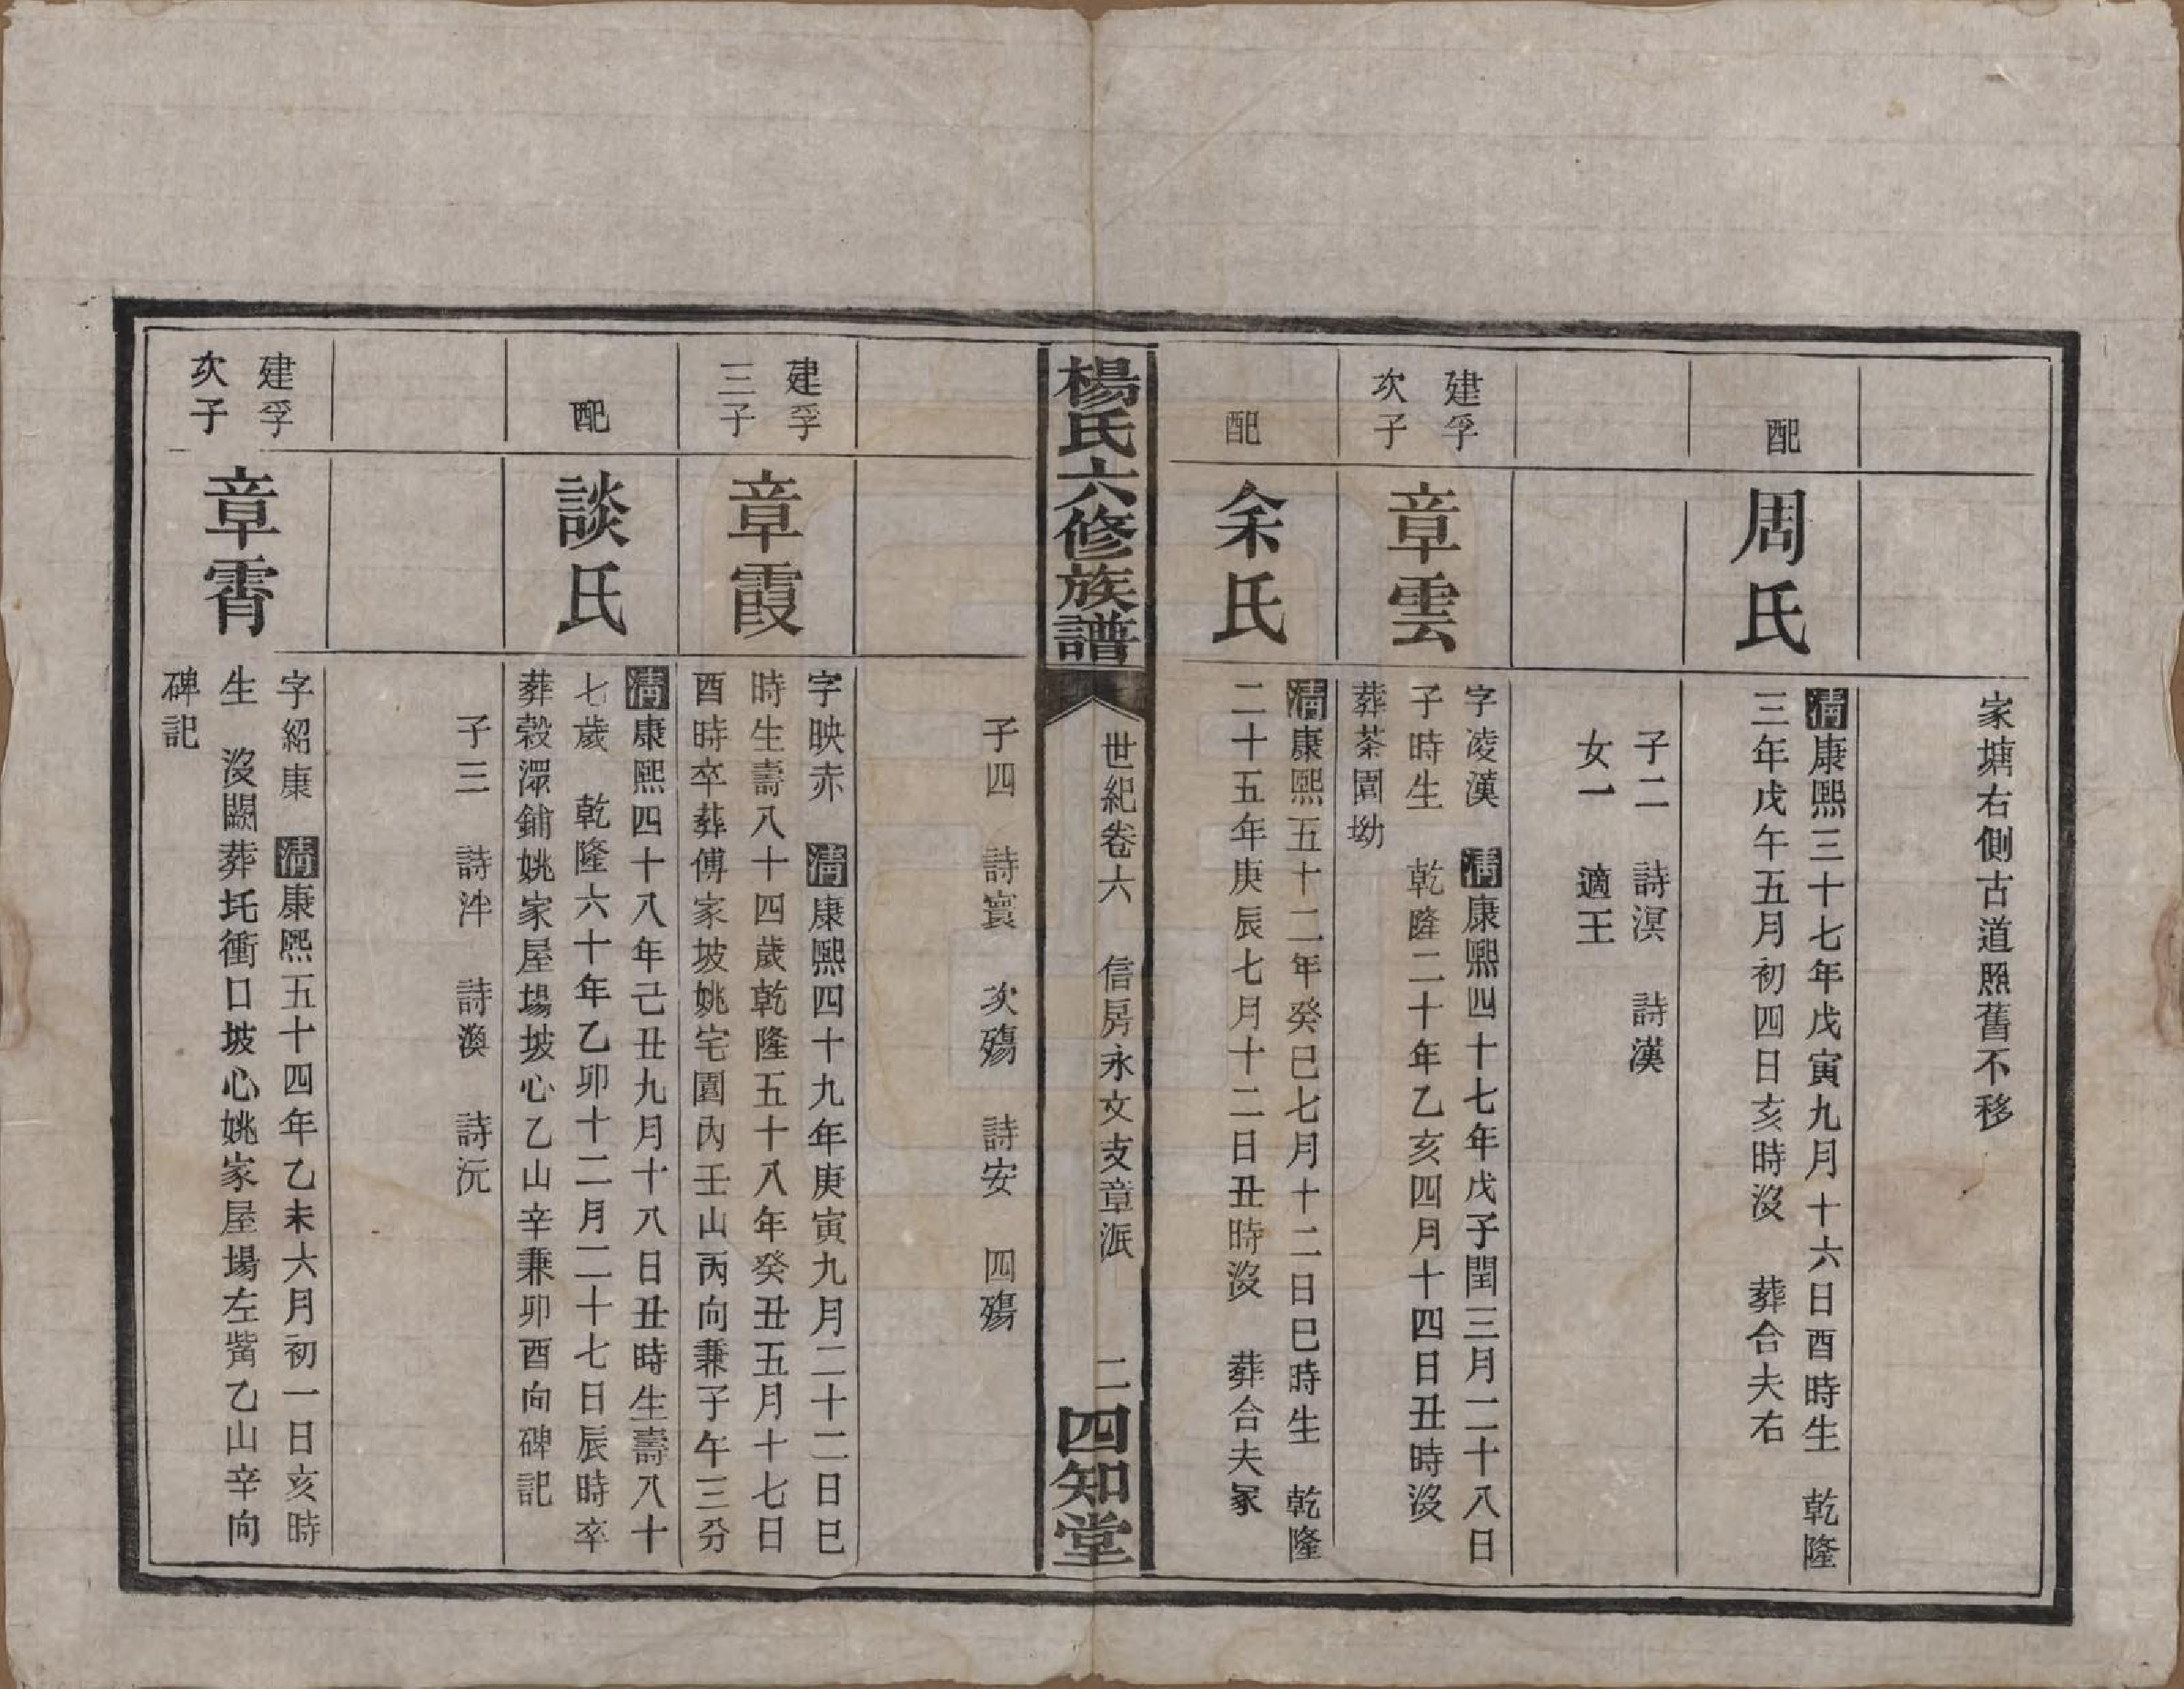 家塘右側古道照舊不移
配
周氏
清康熙三十七年戊寅九月十六日酉時生　乾隆
三年戊午五月初四日亥時沒　葬合夫右
子二　詩溟　詩漢
女一　適王
建孚
次子
章雲
字凌漢　清康熙四十七年戊子閏三月二十八日
子時生　乾隆二十年乙亥四月十四日丑時沒
葬茶園坳
配
余氏
清康熙五十二年癸巳七月十二日巳時生　乾隆
二十五年庚辰七月十二日丑時沒　葬合夫冢
楊氏六修族譜
世紀卷六　信房永文支章派　二
四知堂
子四　詩寰　次殤　詩安　四殤
建孚
三子
章霞
字映赤　清康熙四十九年庚寅九月二十二日巳
時生壽八十四歲乾隆五十八年癸丑五月十七日
酉時卒葬傅家坡姚宅園內壬山丙向兼子午三分
配
談氏
清康熙四十八年己丑九月十八日丑時生壽八十
七歲　乾隆六十年乙卯十二月二十七日辰時卒
葬榖澴鋪姚家屋場坡心乙山辛兼卯酉向碑記
子三　詩泮　詩渙　詩沅
建孚
次子
章霄
字紹康　清康熙五十四年乙未六月初一日亥時
生　沒闕葬圫衝口坡心姚家屋場左觜乙山辛向
碑記